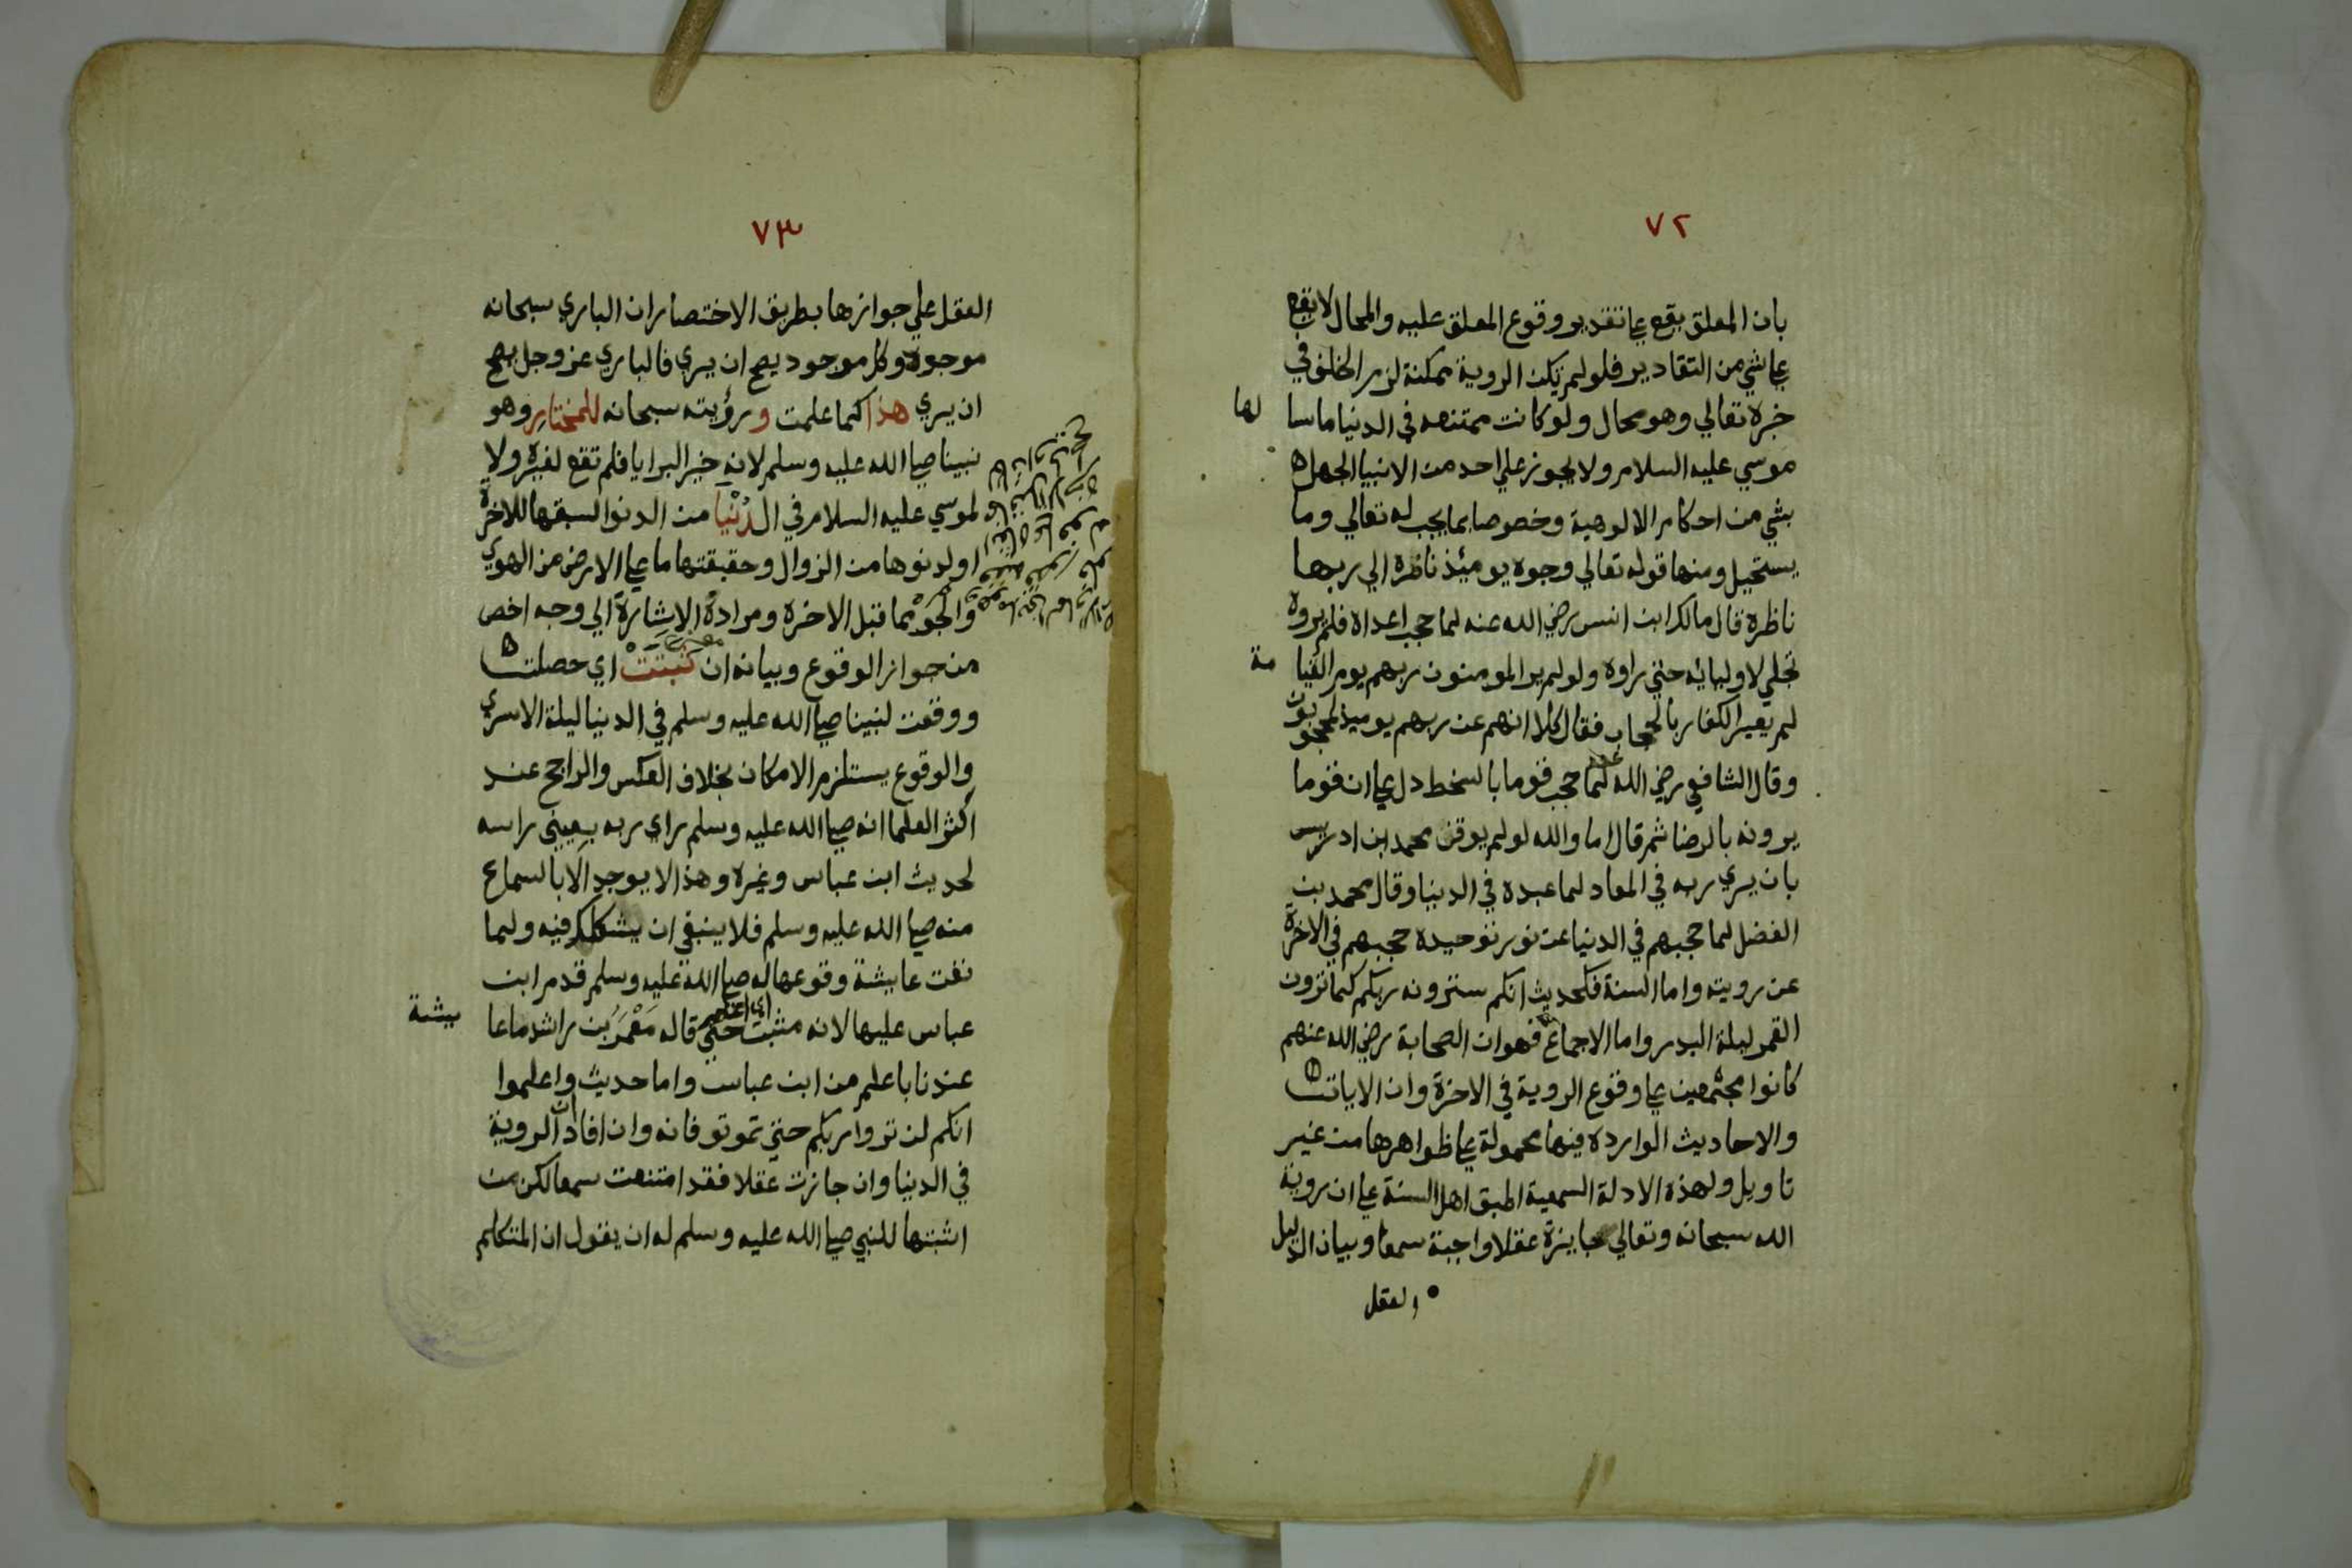 ٧٢
بان المعلق يقع علي تقدير وقوع المعلق عليه والمحال لا يقع
علي شي من التقادير فلو لم تكن الروية ممكنة لزم الخلف في
خبره تعالي وهو محال ولو كانت ممتنعه في الدنيا ما سا لها
موسي عليه السلام ولا يجوز علي احد من الانبيا الجهل ه
بشي من احكام الالوهية وخصوصا بما يجب له تعالي وما
يستحيل ومنها قوله تعالي وجوه يومئذ ناظرة الي ربها
ناظرة قال مالك ابن انس رضي الله عنه لما حجب اعداه فلم يروه
تجلي لاوليائه حتي راوه ولو لم ير المومنون ربهم يوم القيا مة
لم يعير الكفار بالحجاب فقال كلا انهم عن ربهم يوميذ لمحجوبون
وقال الشافعي رضي الله عنه لما حجب قوما بالسخط دل علي ان قوما
يرونه بالرضا ثم قال اما والله لو لم يوقن محمد ابن ادريس
بان يري ربه في المعاد لما عبده في الدنيا وقال محمد بن
الفضل لما حجبهم في الدنيا عن نور توحيده حجبهم في الاخرة
عن رويته واما السنة فكحديث انكم سترونه ربكم كما ترون
القمر ليلة البدر واما الاجماع فهو ان الصحابة رضي الله عنهم
كانوا مجتمعين علي وقوع الروية في الاخرة وان الايات
والاحاديث الوارده فيها محمولة علي ظواهرها من غير
تاويل ولهذه الادلة السمعية اطبق اهل السنة علي ان روية
الله سبحانه وتعالي جايزة عقلا واجبة سمعا وبيان الدليل
العقل
٧٣
العقل علي جوازها بطريق الاختصار ان الباري سبحانه
موجود وكل موجود يصح ان يري فالباري عز وجل يصح
ان يري هذا كما علمت و رؤيته سبحانه للمختار وهو
نبينا صلي الله عليه وسلم لانه خير البرايا فلم تقع لغيره ولا
لموسي عليه السلام في الدُنْيا من الدنو السبقها للاخرة
او لدنوها من الزوال وحقيقتها ما علي الارض من الهوي
والجو مما قبل الاخرة ومراده الاشارة الي وجه اخص
من جواز الوقوع وبيانه ان ثبتت اي حصلت
ووقعت لنبينا صلي الله عليه وسلم في الدنيا ليلة الاسري
والوقوع يستلزم الامكان بخلاف العكس والراجح عند
اكثر العلما انه صلي الله عليه وسلم راي ربه بعيني راسه
لحديث ابن عباس وغيره وهذا لا يوجد الا بالسماع
منه صلي الله عليه وسلم فلا ينبغي ان يشكك فيه ولما
نفت عايشة وقوعها له صلي الله عليه وسلم قدم ابن
عباس عليها لانه مثبت حتي قاله مَعْمَر بن راشد ما عا يشة
عندنا باعلم من ابن عباس واما حديث واعلموا
انكم لن تروا ربكم حتي تموتو فانه وان افاد ان الروية
في الدنيا وان جازت عقلا فقد امتنعت سمعا لكن من
اثبتها للنبي صلي الله عليه وسلم له ان يقول ان المتكلم